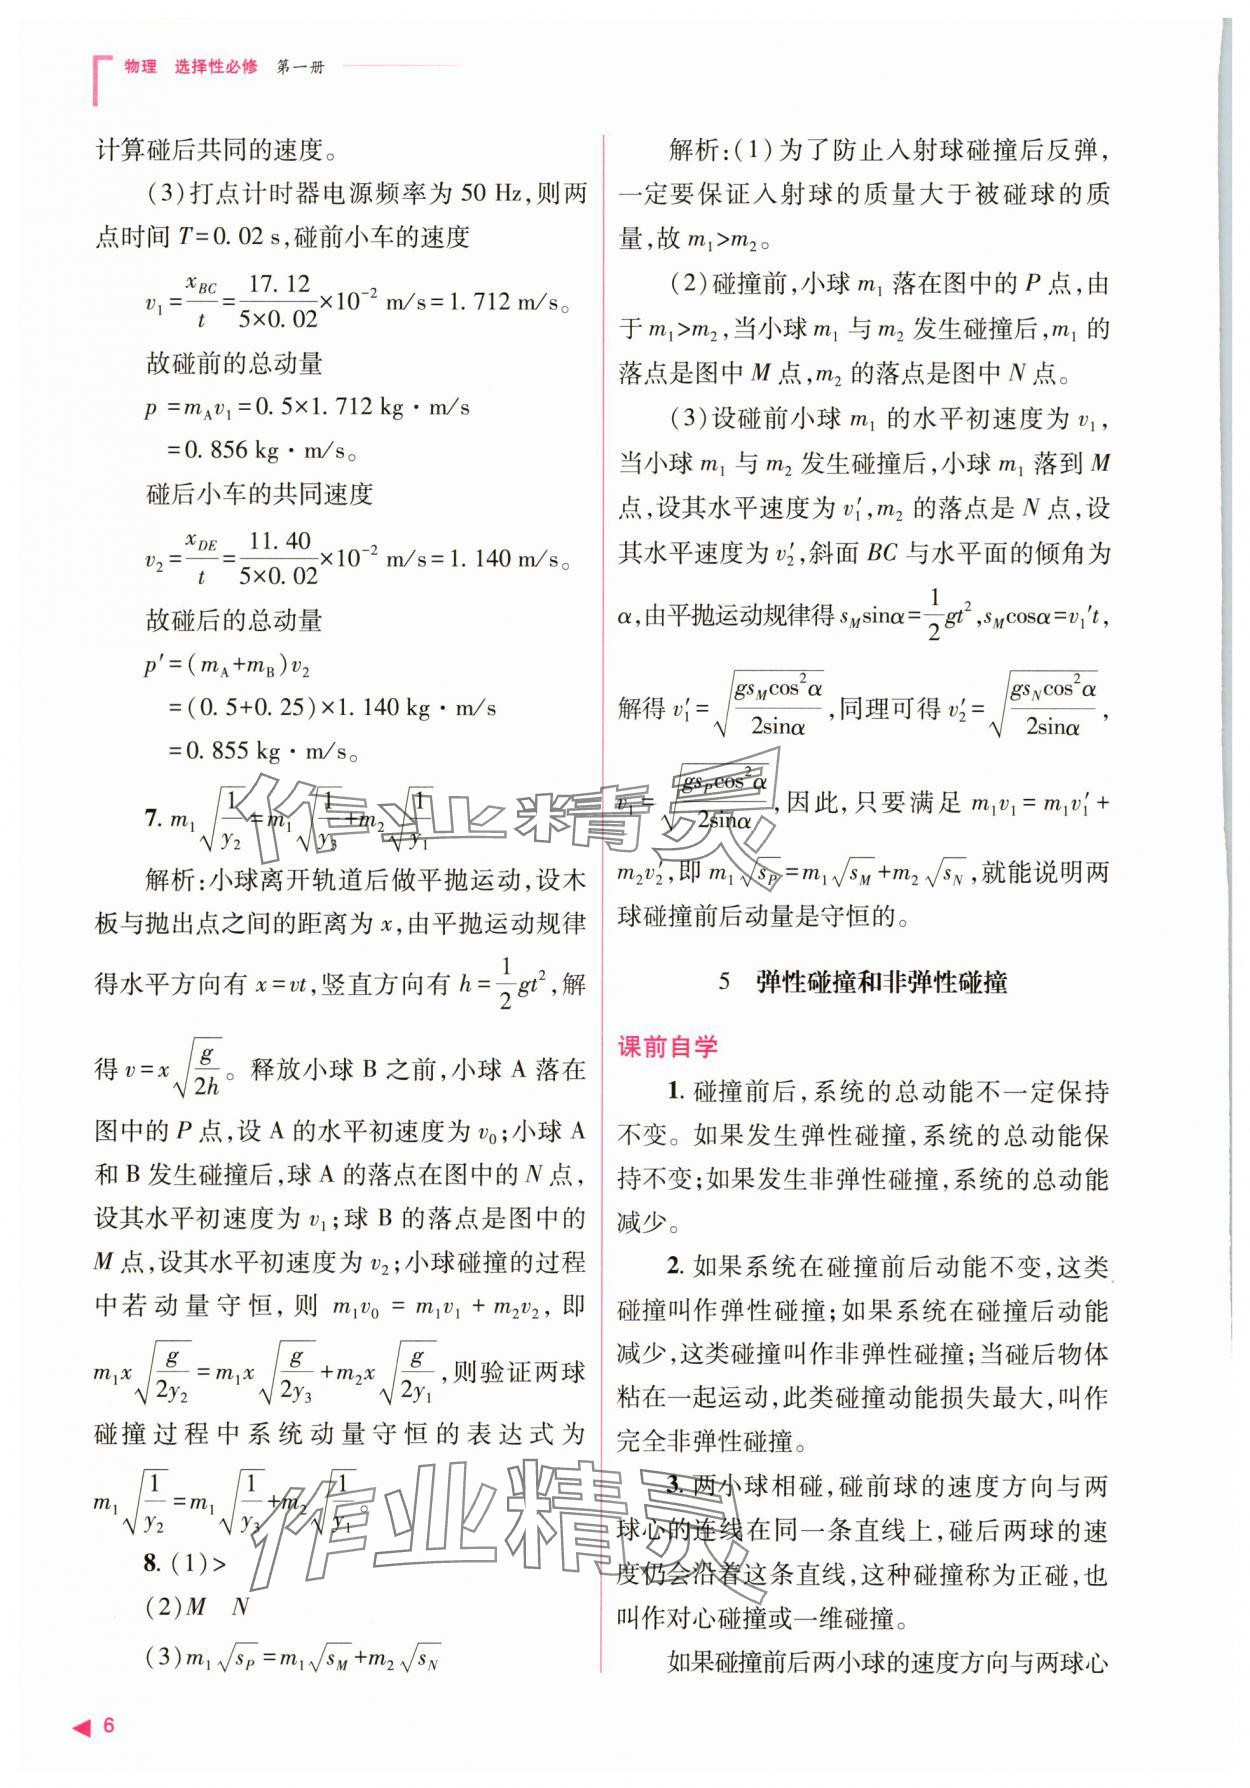 物理 选择性必修 第一册
计算碰后共同的速度。
(3)打点计时器电源频率为 50 Hz,则两
点时间 T=0.02 s,碰前小车的速度
v₁=x_BC/t=17.12/(5×0.02)×10⁻² m/s=1.712 m/s。
故碰前的总动量
p =m_A v₁=0.5×1.712 kg·m/s
=0.856 kg·m/s。
碰后小车的共同速度
v₂=x_DE/t=11.40/(5×0.02)×10⁻² m/s=1.140 m/s。
故碰后的总动量
p′=(m_A+m_B)v₂
=(0.5+0.25)×1.140 kg·m/s
=0.855 kg·m/s。
7. m₁√(1/y₂)=m₁√(1/y₃)+m₂√(1/y₁)
解析:小球离开轨道后做平抛运动,设木
板与抛出点之间的距离为 x,由平抛运动规律
得水平方向有 x=vt,竖直方向有 h=1/2gt²,解
得 v=x√(g/2h)。释放小球 B 之前,小球 A 落在
图中的 P 点,设 A 的水平初速度为 v₀;小球 A
和 B 发生碰撞后,球 A 的落点在图中的 N 点,
设其水平初速度为 v₁;球 B 的落点是图中的
M 点,设其水平初速度为 v₂;小球碰撞的过程
中若动量守恒,则 m₁v₀ = m₁v₁ + m₂v₂,即
m₁x√(g/2y₂)=m₁x√(g/2y₃)+m₂x√(g/2y₁),则验证两球
碰撞过程中系统动量守恒的表达式为
m₁√(1/y₂)=m₁√(1/y₃)+m₂√(1/y₁)。
8. (1)>
(2)M N
(3)m₁√s_P=m₁√s_M+m₂√s_N
解析:(1)为了防止入射球碰撞后反弹,
一定要保证入射球的质量大于被碰球的质
量,故 m₁>m₂。
(2)碰撞前,小球 m₁ 落在图中的 P 点,由
于 m₁>m₂,当小球 m₁ 与 m₂ 发生碰撞后,m₁ 的
落点是图中 M 点,m₂ 的落点是图中 N 点。
(3)设碰前小球 m₁ 的水平初速度为 v₁,
当小球 m₁ 与 m₂ 发生碰撞后,小球 m₁ 落到 M
点,设其水平速度为 v₁′,m₂ 的落点是 N 点,设
其水平速度为 v₂′,斜面 BC 与水平面的倾角为
α,由平抛运动规律得 s_M sinα=1/2gt²,s_M cosα=v₁′t,
解得 v₁′=√(gs_M cos²α/2sinα),同理可得 v₂′=√(gs_N cos²α/2sinα),
v₁=√(gs_P cos²α/2sinα),因此,只要满足 m₁v₁=m₁v₁′+
m₂v₂′,即 m₁√s_P=m₁√s_M+m₂√s_N,就能说明两
球碰撞前后动量是守恒的。
5 弹性碰撞和非弹性碰撞
课前自学
1. 碰撞前后,系统的总动能不一定保持
不变。如果发生弹性碰撞,系统的总动能保
持不变;如果发生非弹性碰撞,系统的总动能
减少。
2. 如果系统在碰撞前后动能不变,这类
碰撞叫作弹性碰撞;如果系统在碰撞后动能
减少,这类碰撞叫作非弹性碰撞;当碰后物体
粘在一起运动,此类碰撞动能损失最大,叫作
完全非弹性碰撞。
3. 两小球相碰,碰前球的速度方向与两
球心的连线在同一条直线上,碰后两球的速
度仍会沿着这条直线,这种碰撞称为正碰,也
叫作对心碰撞或一维碰撞。
如果碰撞前后两小球的速度方向与两球心
作业精灵
作业精灵
6